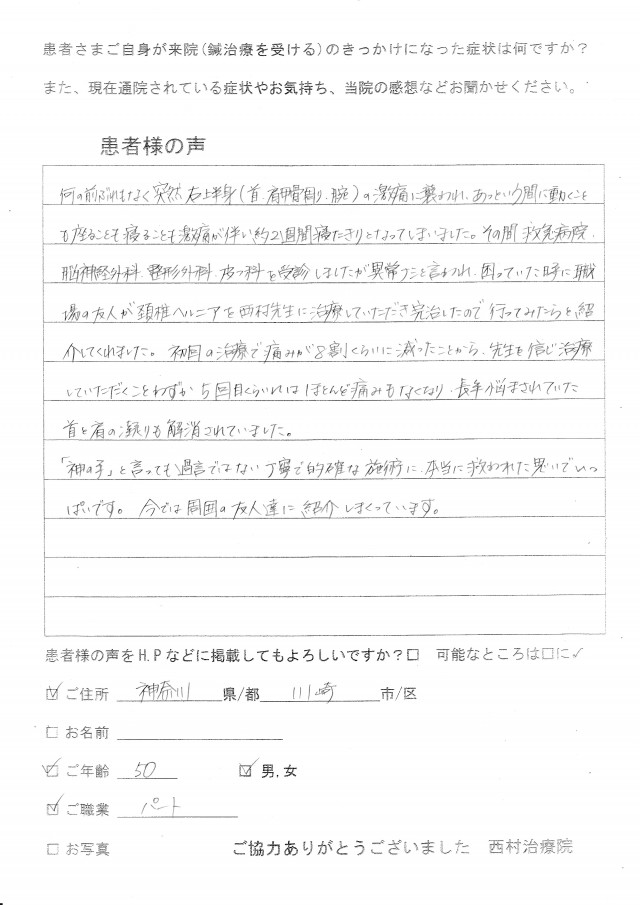 患者さまご自身が来院(鍼治療を受ける)のきっかけになった症状は何ですか?
また、現在通院されている症状やお気持ち、当院の感想などお聞かせください。
患者様の声
何の前ぶれもなく突然右上半身(首、肩甲骨周り、腕)の激痛に襲われ、あっという間に動くこと
も座ることも寝ることも激痛が伴い約2週間寝たきりとなってしまいました。その間救急病院、
脳神経外科、整形外科、皮フ科を受診しましたが異常ナシと言われ、困っていた時に職
場の友人が頚椎ヘルニアを西村先生に治療していただき完治したので行ってみたらと紹
介してくれました。初回の治療で痛みが8割くらいに減ったことから、先生を信じ治療
していただくことわずか5回目くらいにはほとんど痛みもなくなり、長年悩まされていた
首と肩の凝りも解消されていました。
「神の手」と言っても過言ではない丁寧で的確な施術に、本当に救われた思いでいっ
ぱいです。今では周囲の友人達に紹介しまくっています。
患者様の声をH.Pなどに掲載してもよろしいですか?□ 可能なところは□に✓
☑ご住所 神奈川 県/都 川崎 市/区
□お名前
☑ご年齢 50 ☑男,女
☑ご職業 パート
□お写真 ご協力ありがとうございました 西村治療院